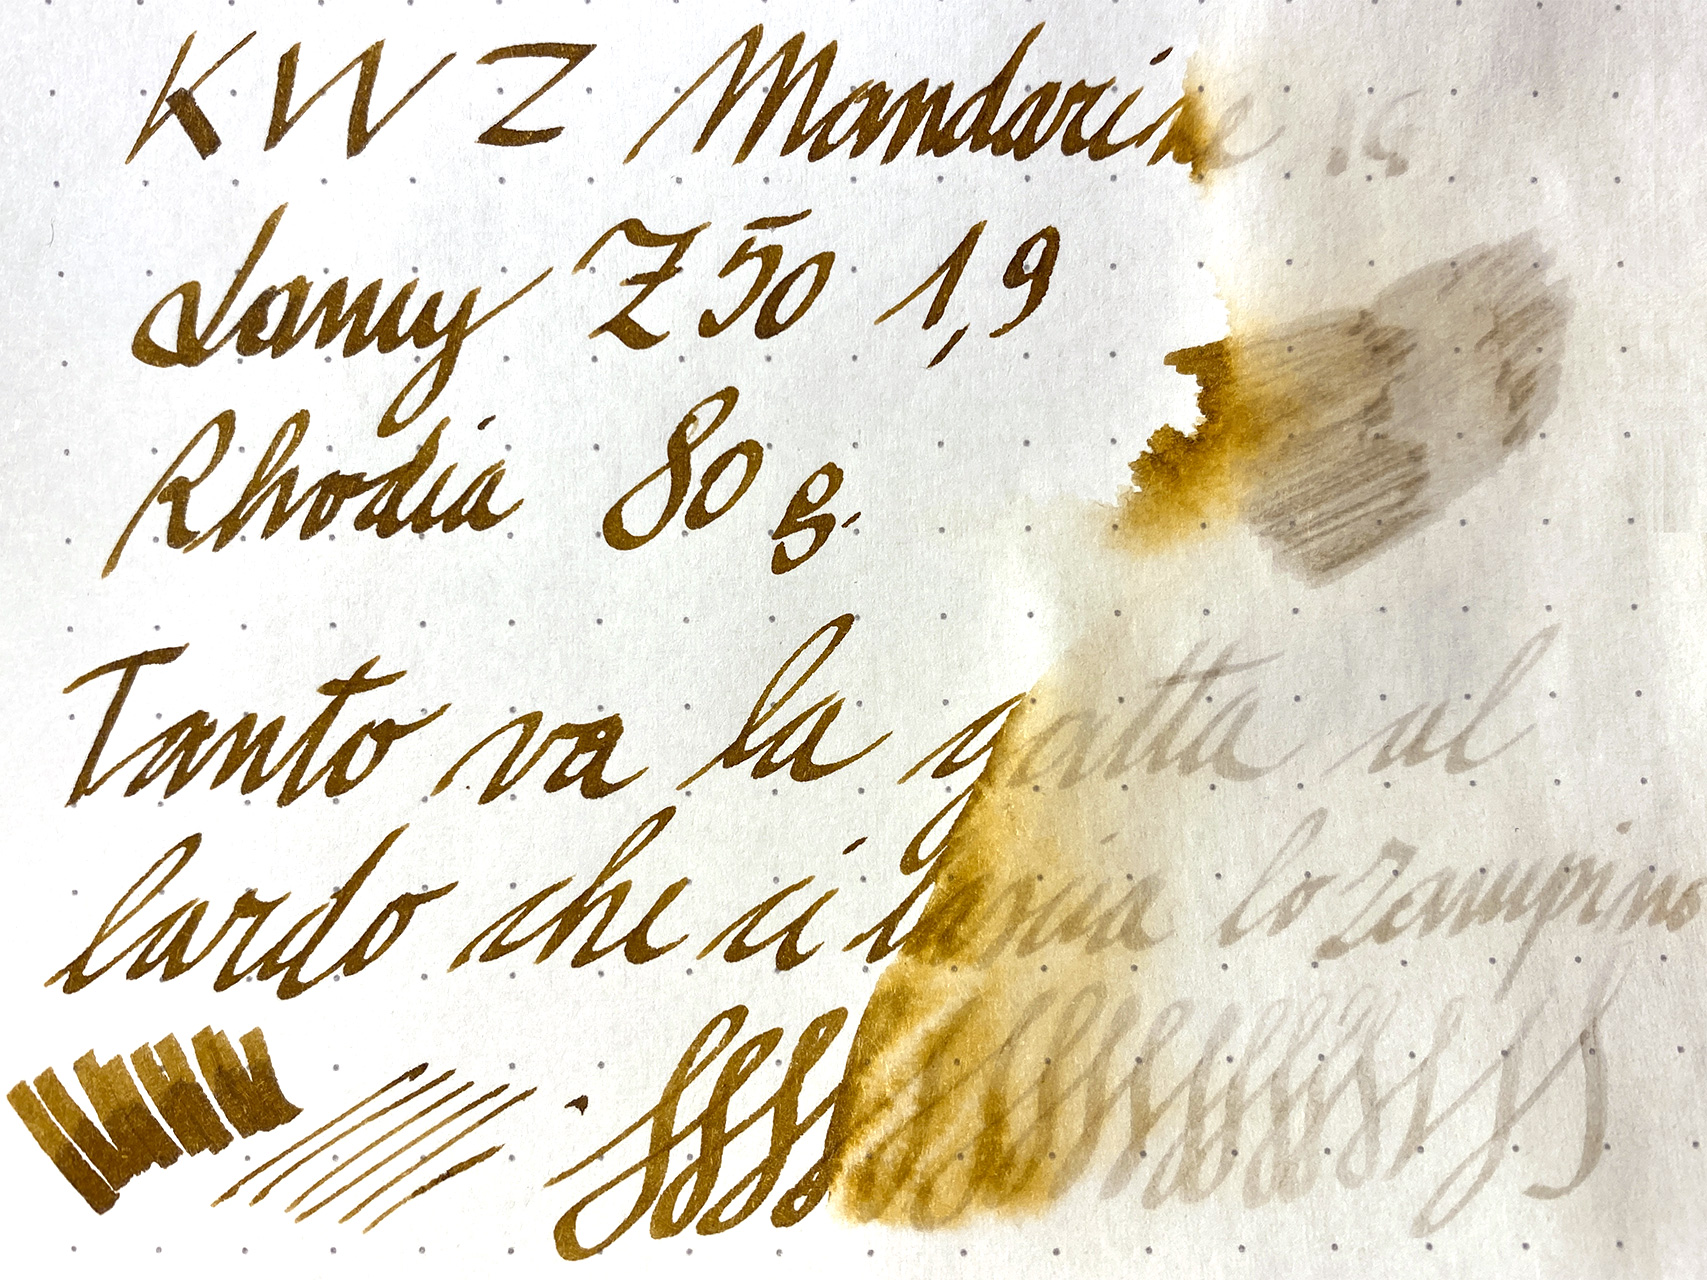 KWZ Mandarine IG
Lamy Z50 1,9
Rhodia 80 g.
Tanto va la gatta al
lardo che ci lascia lo zampino